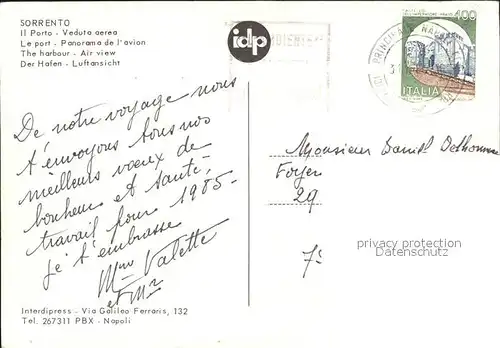 SORRENTO
Il Porto - Veduta aerea
Le port - Panorama de l'avion
The harbour - Air view
Der Hafen - Luftansicht
idp
400
ITALIA
De notre voyage nous
t'envoyons tous nos
meilleurs vœux de
bonheur et santé,
travail pour 1985.
je t'embrasse
Mme Valette
et Mr
Monsieur Daniel Delhomme
Foyer
29
75
privacy protection
by veikkos.com
Interdipress - Via Galileo Ferraris, 132
Tel. 267311 PBX - Napoli